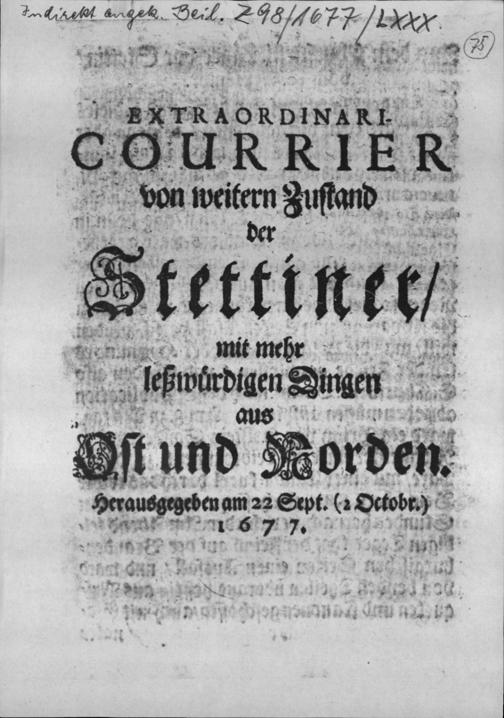 Indirekt angek. Beil. Z98/1677/LXXX.
75
EXTRAORDINARI-
COURRIER
von weitern Zustand
der
Stettiner/
mit mehr
leßwürdigen Dingen
aus
Ost und Norden.
Herausgegeben am 22 Sept. (2 Octobr.)
1677.